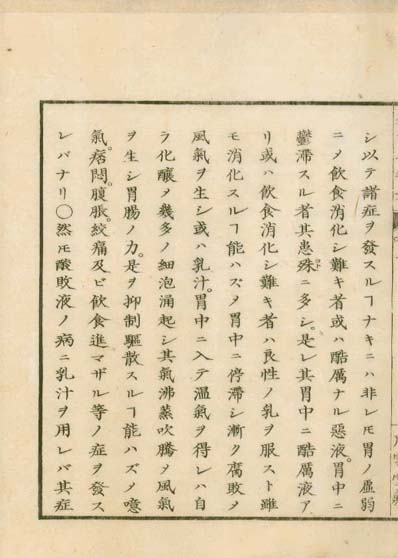 シ以テ諸症ヲ發スルヿナキニハ非レ𪜈胃ノ虛弱
ニメ飲食消化シ難キ者或ハ酷厲ナル惡液胃中ニ
鬱滯スル者其患殊ニ多シ是レ其胃中ニ酷厲液ア
リ或ハ飲食消化シ難キ者ハ良性ノ乳ヲ服スト雖
モ消化スルヿ能ハズメ胃中ニ停滯シ漸ク腐敗メ
風氣ヲ生シ或ハ乳汁胃中ニ入テ溫氣ヲ得レハ自
ラ化釀メ幾多ノ細泡涌起シ其氣沸蒸吹騰メ風氣
ヲ生シ胃腸ノ力是ヲ抑制驅散スルヿ能ハズメ噫
氣。痞悶。腹脹。絞痛及ビ飲食進マザル等ノ症ヲ發ス
レバナリ〇然𪜈酸敗液ノ病ニ乳汁ヲ用レバ其症